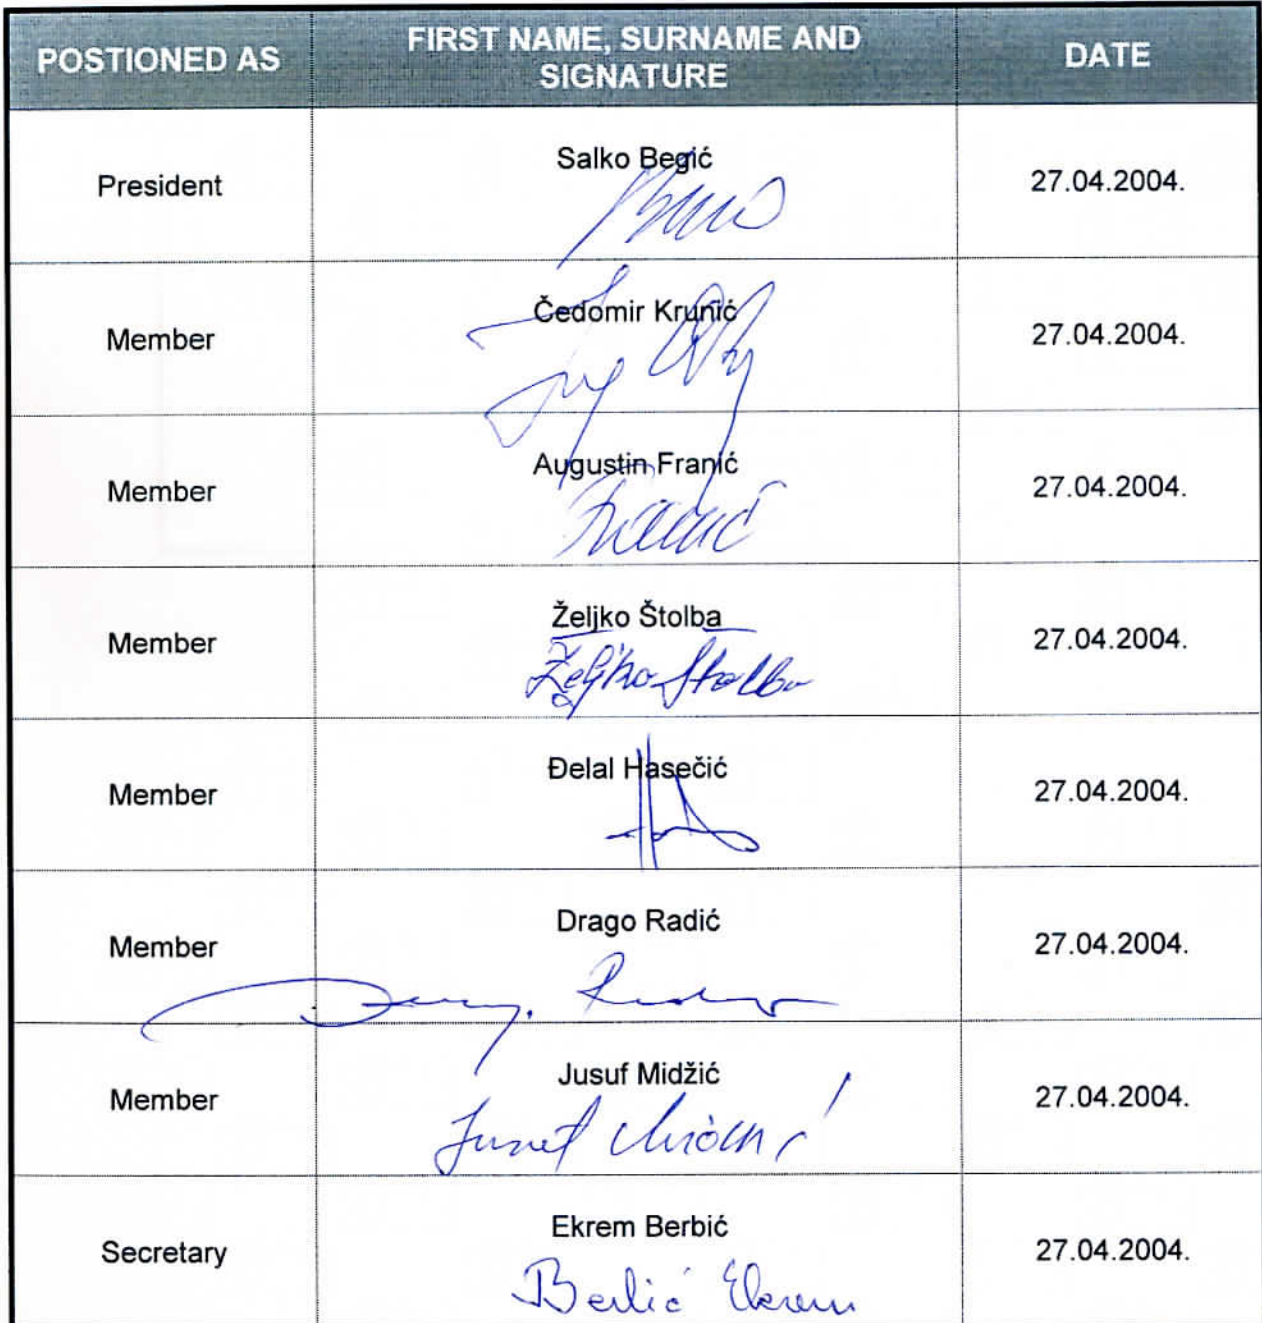 POSTIONED AS
FIRST NAME, SURNAME AND
SIGNATURE
DATE
President
Salko Begić
27.04.2004.
Member
Čedomir Krunić
27.04.2004.
Member
Augustin Franić
Franić
27.04.2004.
Member
Željko Štolba
Željko Štolba
27.04.2004.
Member
Đelal Hasečić
27.04.2004.
Member
Drago Radić
27.04.2004.
Member
Jusuf Midžić
Jusuf Midžić
27.04.2004.
Secretary
Ekrem Berbić
Berbić Ekrem
27.04.2004.